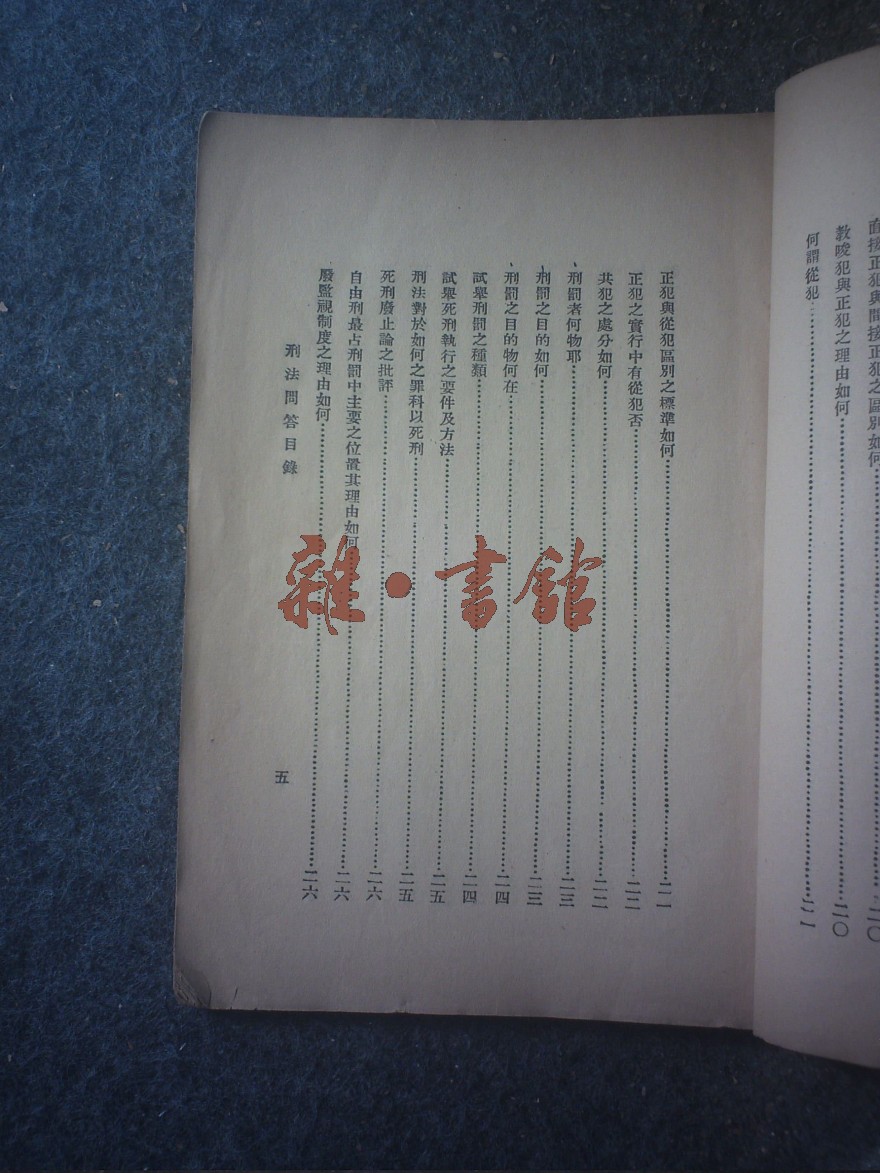 直接正犯與間接正犯之區別如何……二〇
教唆犯與正犯之理由如何……二〇
何謂從犯……二一
正犯與從犯區別之標準如何……二一
正犯之實行中有從犯否……二二
共犯之處分如何……二二
刑罰者何物耶……二三
刑罰之目的如何……二三
刑罰之目的物何在……二四
試舉刑罰之種類……二四
試舉死刑執行之要件及方法……二五
刑法對於如何之罪科以死刑……二五
死刑廢止論之批評……二六
自由刑最占刑罰中主要之位置其理由如何……二六
廢監視制度之理由如何……二六
刑法問答目錄
五
雜·書館